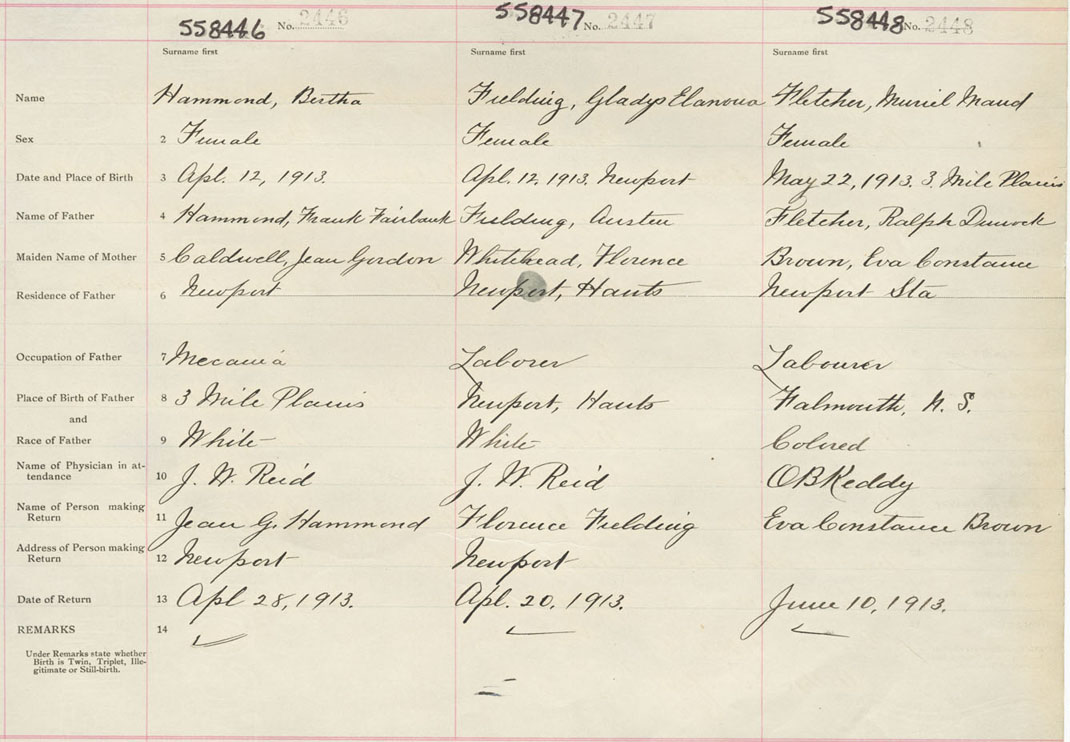 558446 No. 2446 558447 No. 2447 558448 No. 2448
Surname first Surname first Surname first
Name Hammond, Bertha Fielding, Gladys Elanoua Fletcher, Muriel Maud
Sex 2 Female Female Female
Date and Place of Birth 3 Apl. 12, 1913. Apl. 12. 1913. Newport May 22, 1913. 3 Mile Plains
Name of Father 4 Hammond, Frank Fairbank Fielding, Austen Fletcher, Ralph Dimock
Maiden Name of Mother 5 Caldwell, Jean Gordon Whitehead, Florence Brown, Eva Constance
Residence of Father 6 Newport Newport, Hants Newport Sta
Occupation of Father 7 Laborer Labourer
Place of Birth of Father 8 3 Mile Plains Newport, Hants Falmouth, N. S.
and
Race of Father 9 White White Colored
Name of Physician in at-
tendance 10 J. W. Reid J. W. Reid OBKeddy
Name of Person making
Return 11 Jean G. Hammond Florence Fielding Eva Constance Brown
Address of Person making
Return 12 Newport Newport
Date of Return 13 Apl 28, 1913. Apl. 20, 1913. June 10, 1913.
REMARKS 14
Under Remarks state whether
Birth is Twin, Triplet, Ille-
gitimate or Still-birth.